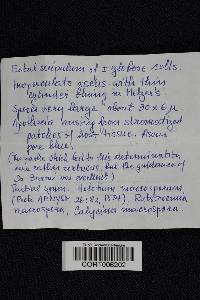 Ectal excipulum of ± globose cells.
Inoperculate ascus with thin
cylinder bluing in Melzer's
Spores very large about 30 x 6 μ
Apothecia arising from stromatized
patches of host tissue. Ascus
pore blue.
(The guide which led to this determination
was rather tortuous, but the guidance of
was excellent)
Partial synon. Helotium macrosporum
(Peck 26: 82, 1874), Rutstroemia
macrospora, Calycina macrospora.
CORT006202